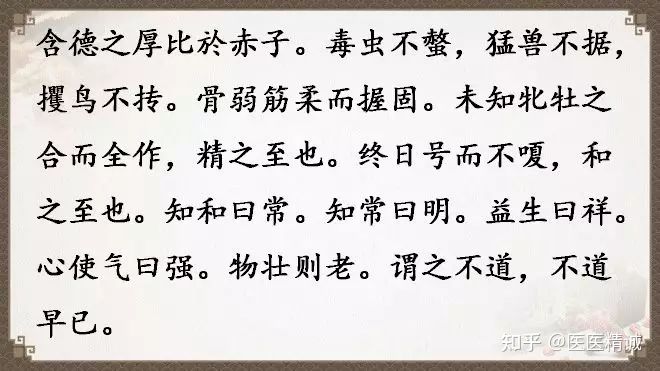 含德之厚比於赤子。毒虫不螫，猛兽不据，
攫鸟不抟。骨弱筋柔而握固。未知牝牡之
合而全作，精之至也。终日号而不嗄，和
之至也。知和曰常。知常曰明。益生曰祥。
心使气曰强。物壮则老。谓之不道，不道
早已。
知乎 @医医精诚